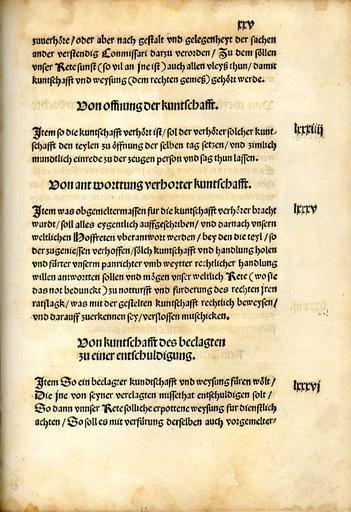 xxv
zuuerhörn/ oder aber nach gestalt vnd gelegenheyt der sachen
ander verstendig Commissari darzu verorden/ Zu dem söllen
vnser Rete sunst (so vil an jne ist) auch allen vleyß thun/ damit
kuntschafft vnd weysung (dem rechten gemeß) gehört werde.
Von offnung der kuntschafft.
Item so die kuntschafft verhört ist/ sol der verhörer solcher kunt-
schafft den teylen zu öffnung der selben tag setzen/ vnd zimlich
mundtlich einrede zu der zeugen person vnd sag thun lassen.
lxxxiiij
Von antworttung verhörter kuntschafft.
Item was obgemeltermassen für die kuntschafft verhörer bracht
wurdt/ soll alles eygentlich auffgeschriben/ vnd darnach vnsern
weltlichen Hoffreten vberantwort werden/ bey den die teyl/ so
der zugeniessen verhoffen/ sölch kuntschafft vnd handlung holen
vnd fürter vnserm panrichter vmb weytter rechtlicher handlung
willen antworten sollen vnd mögen vnser weltlich Rete (wo sie
das not bedunckt) zu notturfft vnd furderung des rechten jren
ratslagk/ was mit der gestelten kuntschafft rechtlich beweysen/
vnd darauff zuerkennen sey/ verslossen mitschicken.
lxxxv
Von kuntschafft des beclagten
zu einer entschuldigung.
Item So ein beclagter kundtschafft vnd weysung füren wölt/
Die jne von seyner verclagten missethat entschuldigen solt/
So dann vnnser Rete solliche erpottene weysung für dienstlich
achten/ So soll es mit verfürung derselben auch vorgemelter-
lxxxvj